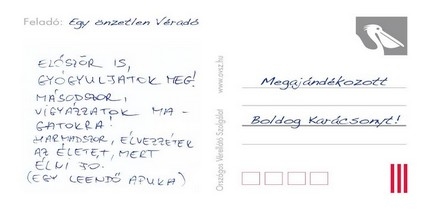 Feladó: Egy önzetlen Véradó
ELŐSZÖR IS,
GYÓGYULJATOK MEG!
MÁSODSZOR,
VIGYÁZZATOK MA-
GATOKRA!
HARMADSZOR, ÉLVEZZÉTEK
AZ ÉLETET, MERT
ÉLNI JÓ.
(EGY LEENDŐ APUKA)
Országos Vérellátó Szolgálat www.ovsz.hu
Megajándékozott
Boldog Karácsonyt!